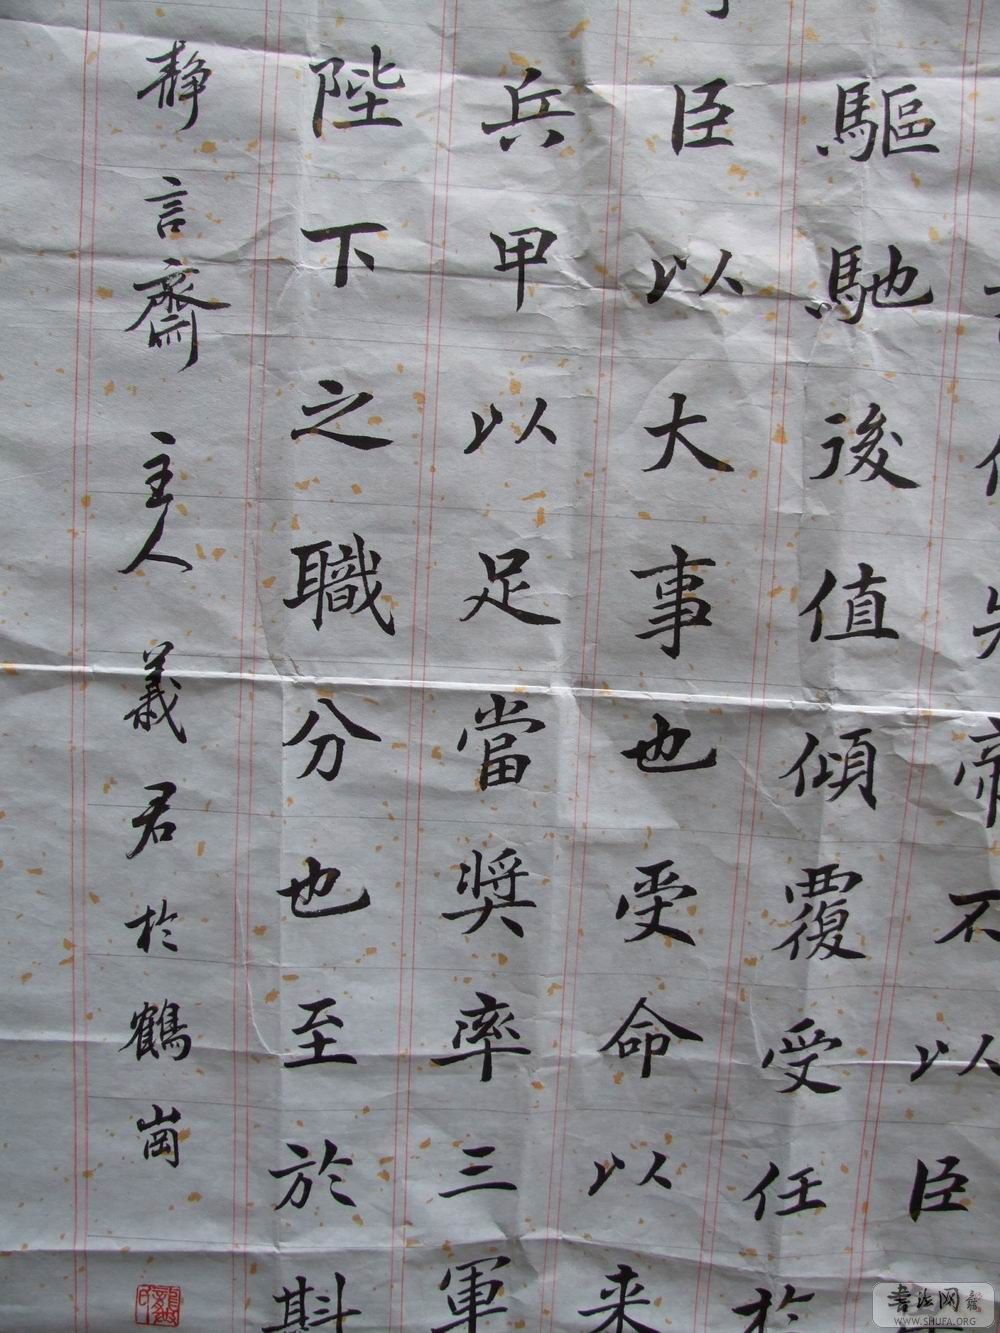 先帝不以臣
驅馳後值傾覆受任於
臣以大事也受命以来
兵甲以足當奬率三軍
陛下之職分也至於斟
靜言齋主人義君於鶴崗
书法网
WWW.SHUFA.ORG